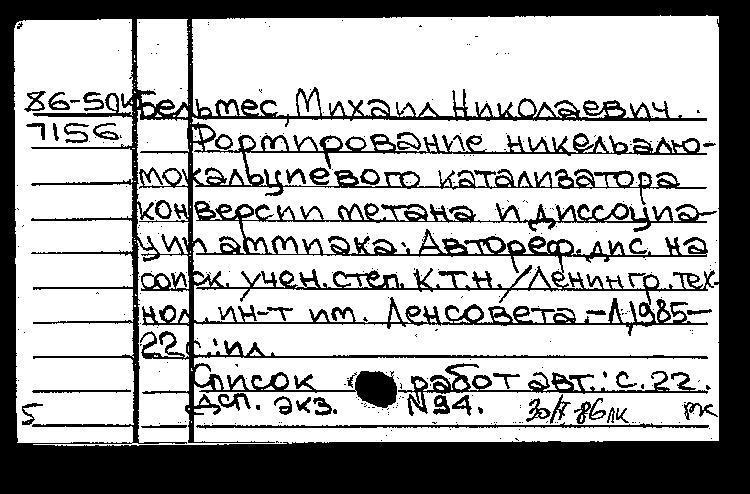 86-5ДИ Бельтес, Михаил Николаевич.
7156 Формирование никельалю-
мокальциевого катализатора
конверсии метана и диссоциа-
ции аммиака: Автореф. дис. на
соиск. учен. степ. К.Т.Н. / Ленингр. тех-
нол. ин-т им. Ленсовета. - Л, 1985. -
22 с.: ил.
Список работ авт.: с. 22.
5 Дсп. экз. N 94.